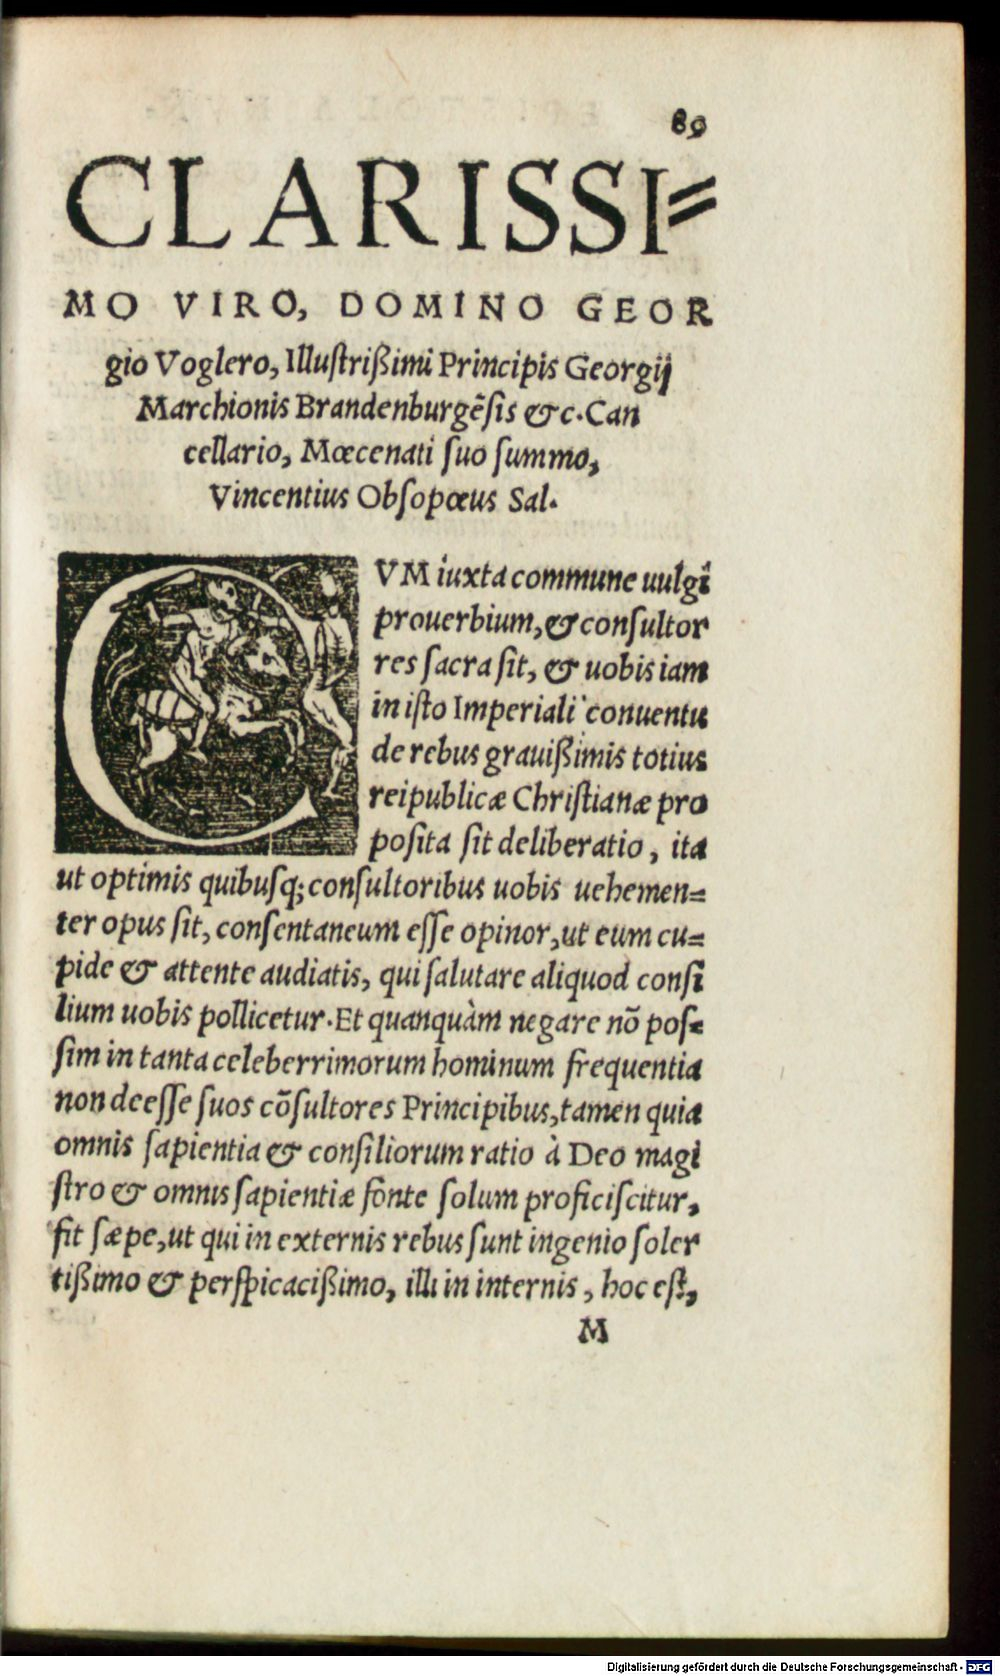 89
CLARISSI=
MO VIRO, DOMINO GEOR
gio Voglero, Illuſtrißimi Principis Georgij
Marchionis Brandenburgẽſis &c. Can
cellario, Mœcenati ſuo ſummo,
Vincentius Obſopœus Sal.
CVM iuxta commune uulgi
prouerbium, & conſultor
res ſacra ſit, & uobis iam
in iſto Imperiali conuentu
de rebus grauißimis totius
reipublicæ Chriſtianæ pro
poſita ſit deliberatio, ita
ut optimis quibuſq; conſultoribus uobis uehemen=
ter opus ſit, conſentaneum eſſe opinor, ut eum cu=
pide & attente audiatis, qui ſalutare aliquod conſi
lium uobis pollicetur. Et quanquàm negare nõ poſ=
ſim in tanta celeberrimorum hominum frequentia
non deeſſe ſuos cõſultores Principibus, tamen quia
omnis ſapientia & conſiliorum ratio à Deo magi
ſtro & omnis ſapientiæ fonte ſolum proficiſcitur,
fit ſæpe, ut qui in externis rebus ſunt ingenio ſoler
tißimo & perſpicacißimo, illi in internis, hoc eſt,
M
Digitalisierung gefördert durch die Deutsche Forschungsgemeinschaft - DFG